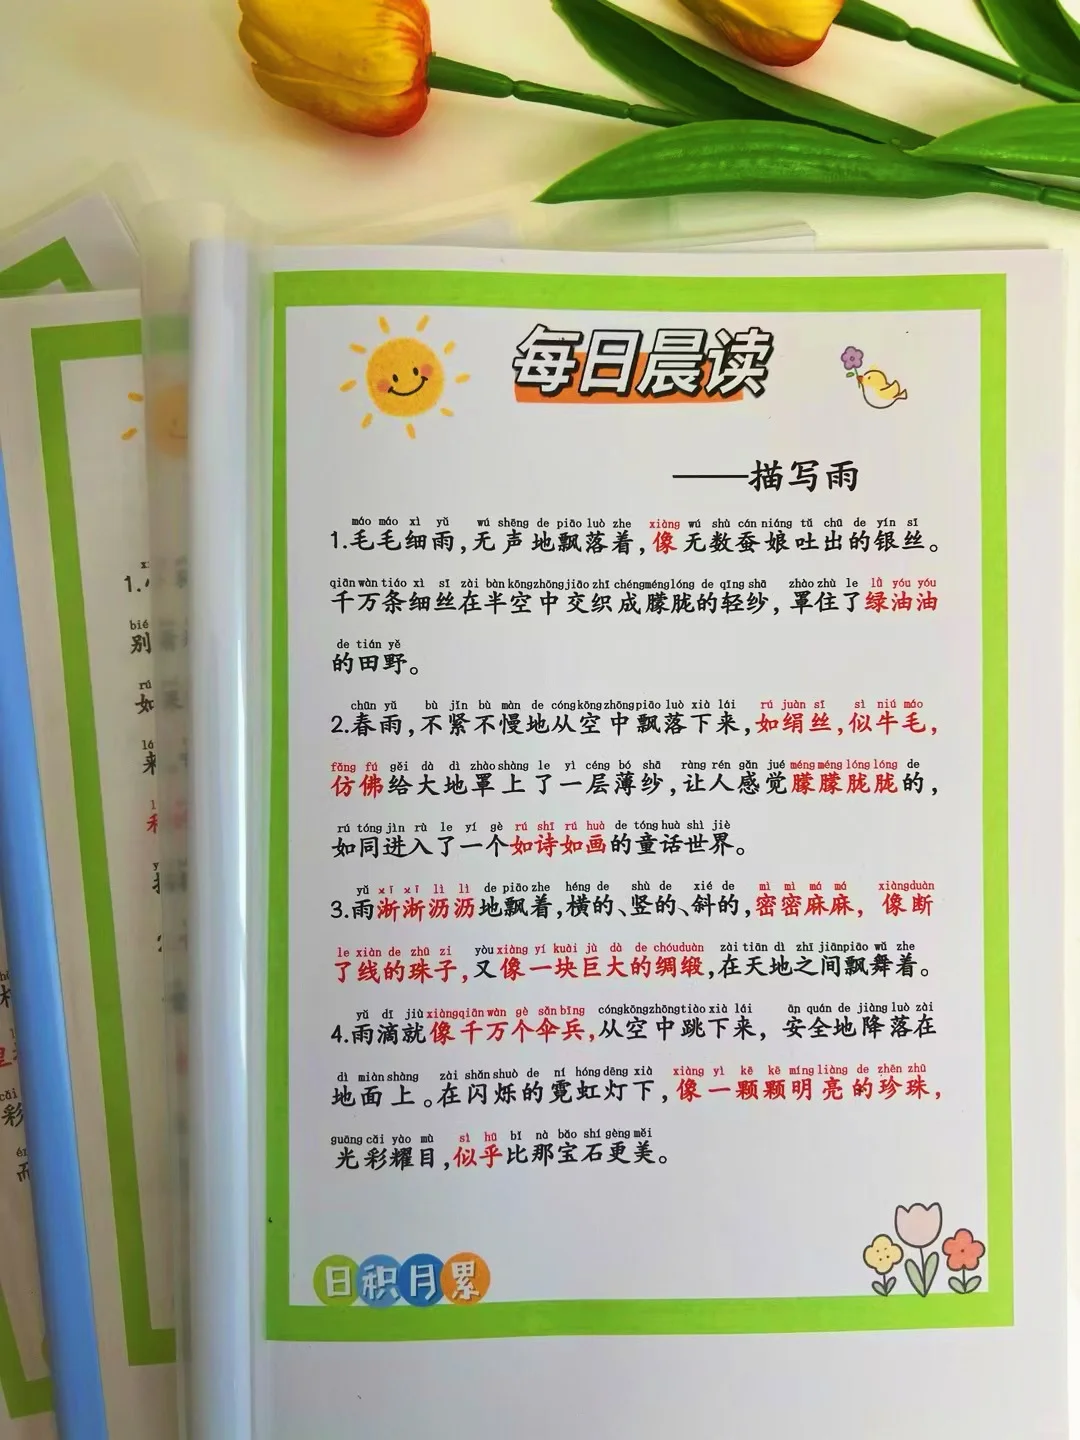 每日晨读
——描写雨
máo máo xì yǔ wú shēng de piāo luò zhe xiàng wú shù cán niáng tǔ chū de yín sī
1.毛毛细雨,无声地飘落着,像无数蚕娘吐出的银丝。
qiān wàn tiáo xì sī zài bàn kōng zhōng jiāo zhī chéng méng lóng de qīng shā zhào zhù le lǜ yóu yóu
千万条细丝在半空中交织成朦胧的轻纱,罩住了绿油油
de tián yě
的田野。
chūn yǔ bù jǐn bù màn de cóng kōng zhōng piāo luò xià lái rú juàn sī sì niú máo
2.春雨,不紧不慢地从空中飘落下来,如绢丝,似牛毛,
fǎng fú gěi dà dì zhào shàng le yì céng bó shā ràng rén gǎn jué méng méng lóng lóng de
仿佛给大地罩上了一层薄纱,让人感觉朦朦胧胧的,
rú tóng jìn rù le yí gè rú shī rú huà de tóng huà shì jiè
如同进入了一个如诗如画的童话世界。
yǔ xī xī lì lì de piāo zhe héng de shù de xié de mì mì má má xiàng duàn
3.雨淅淅沥沥地飘着,横的、竖的、斜的,密密麻麻,像断
le xiàn de zhū zi yòu xiàng yí kuài jù dà de chóu duàn zài tiān dì zhī jiān piāo wǔ zhe
了线的珠子,又像一块巨大的绸缎,在天地之间飘舞着。
yǔ dī jiù xiàng qiān wàn gè sǎn bīng cóng kōng zhōng tiào xià lái ān quán de jiàng luò zài
4.雨滴就像千万个伞兵,从空中跳下来,安全地降落在
dì miàn shàng zài shǎn shuò de ní hóng dēng xià xiàng yì kē kē míng liàng de zhēn zhū
地面上。在闪烁的霓虹灯下,像一颗颗明亮的珍珠,
guāng cǎi yào mù sì hū bǐ nà bǎo shí gèng měi
光彩耀目,似乎比那宝石更美。
日积月累